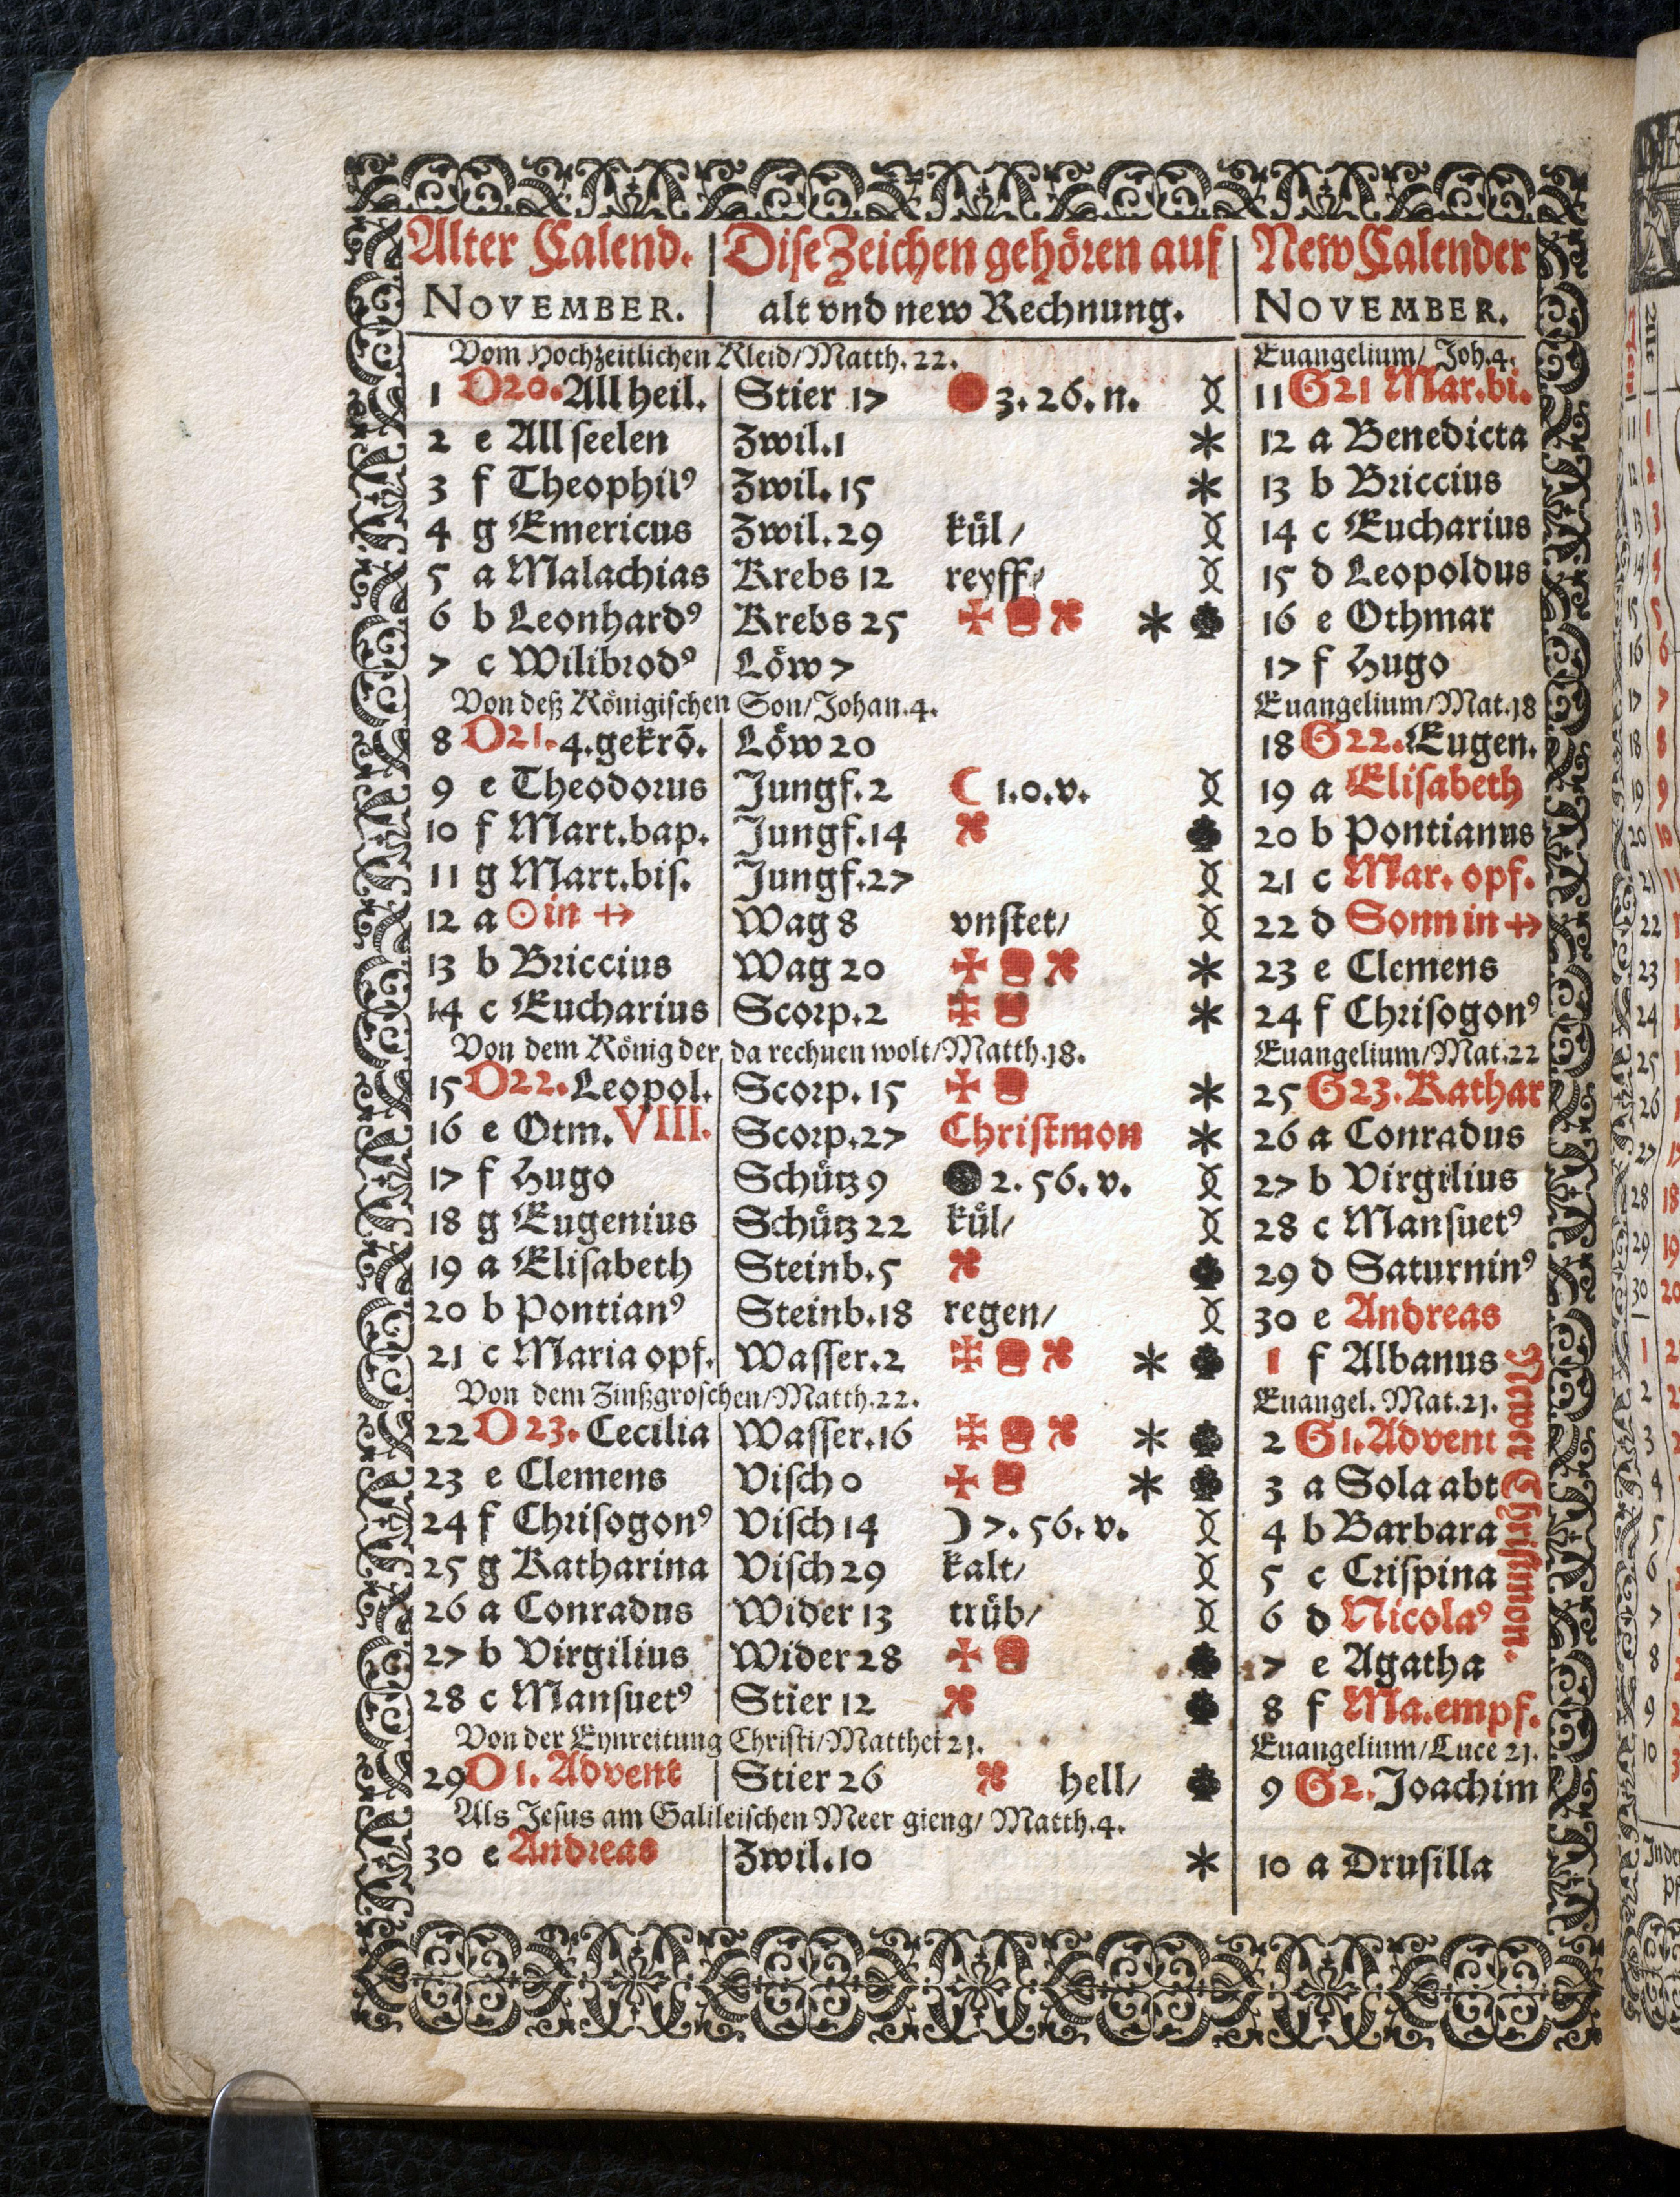 Alter Calend. | Dise Zeichen gehören auf | New Calender
NOVEMBER. | alt vnd new Rechnung. | NOVEMBER.
Vom Hochzeitlichen Kleid/Matth. 22. Euangelium/ Joh.4.
1 D20. All heil. Stier 17 3. 26. n. 11 G21 Mar.bi.
2 e All seelen Zwil.1 12 a Benedicta
3 f Theophil⁹ Zwil. 15 13 b Briccius
4 g Emericus Zwil.29 kül/ 14 c Eucharius
5 a Malachias Krebs 12 reyff/ 15 d Leopoldus
6 b Leonhard⁹ Krebs 25 16 e Othmar
7 c Wilibrod⁹ Löw 7 17 f Hugo
Von deß Königischen Son/Johan.4. Euangelium/Mat.18
8 D21. 4.gekrō. Löw 20 18 G22. Eugen.
9 e Theodorus Jungf. 2 ☾ 1.0.v. 19 a Elisabeth
10 f Mart.bap. Jungf.14 20 b Pontianus
11 g Mart.bis. Jungf.27 21 c Mar. opf.
12 a ☉ in ♐ Wag 8 vnstet/ 22 d Sonn in ♐
13 b Briccius Wag 20 23 e Clemens
14 c Eucharius Scorp.2 24 f Chrisogon⁹
Von dem König der da rechnen wolt/Matth.18. Euangelium/Mat.22
15 D22. Leopol. Scorp. 15 25 G23. Kathar
16 e Otm. VIII. Scorp.27 Christmon 26 a Conradus
17 f Hugo Schütz 9 2. 56. v. 27 b Virgilius
18 g Eugenius Schütz 22 kül/ 28 c Mansuet⁹
19 a Elisabeth Steinb.5 29 d Saturnin⁹
20 b Pontian⁹ Steinb.18 regen/ 30 e Andreas
21 c Maria opf. Wasser.2 1 f Albanus
Von dem Zinßgroschen/Matth.22. Euangel. Mat.21.
22 D23. Cecilia Wasser.16 2 G1. Advent
23 e Clemens Visch 0 3 a Sola abt
24 f Chrisogon⁹ Visch 14 ☽ 7. 56. v. 4 b Barbara
25 g Katharina Visch 29 kalt/ 5 c Crispina
26 a Conradus Wider 13 trüb/ 6 d Nicola⁹
27 b Virgilius Wider 28 7 e Agatha
28 c Mansuet⁹ Stier 12 8 f Ma.empf.
Von der Eynreitung Christi/Matthei 21. Euangelium/Luce 21.
29 D1. Advent Stier 26 hell/ 9 G2. Joachim
Als Jesus am Galileischen Meer gieng/ Matth.4.
30 e Andreas Zwil.10 10 a Drusilla
Newer Christmon.